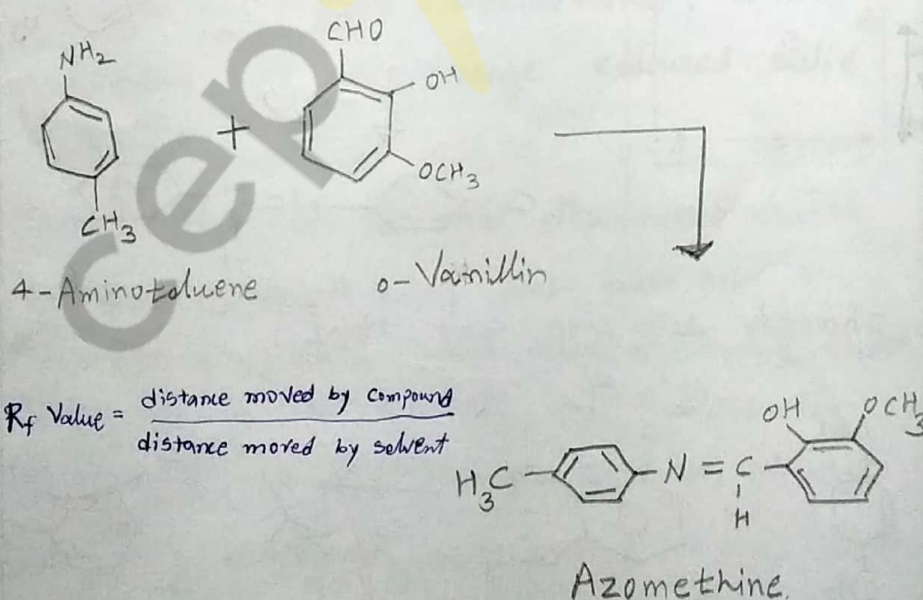 NH2
CH3
4-Aminotoluene
+
CHO
OH
OCH3
o-Vanillin
Rf Value = distance moved by compound
distance moved by solvent
H3C
N = C
H
OH
OCH3
Azomethine.
cep